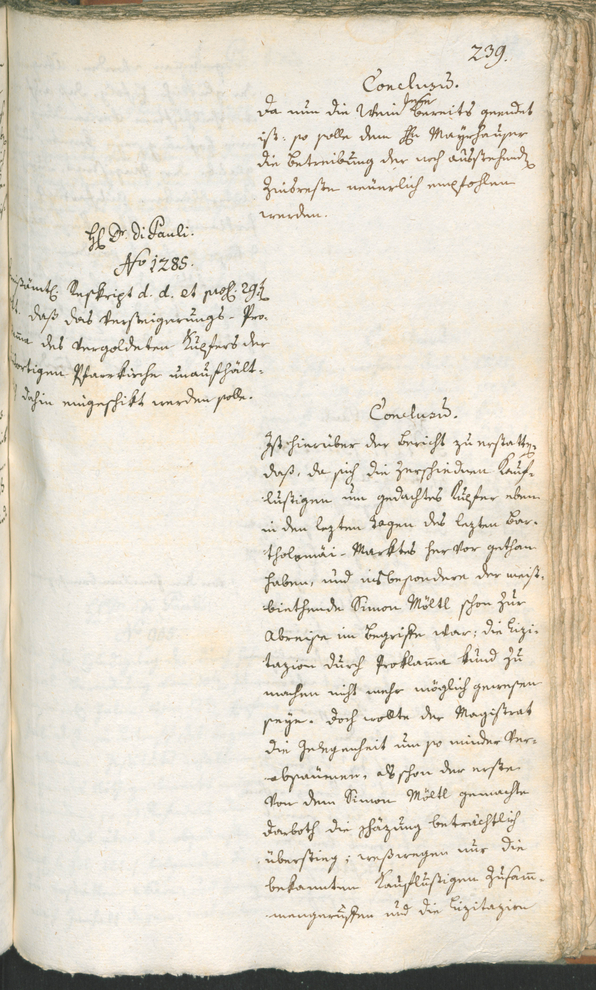 239.
Conclusum.
Da nun die Wein lese bereits geendet
ist: so solle dem H Mayrhauser
die Betreibung der noch ausstehenden
Zinsreste neuerlich empfohlen
werden.
H Dr. Di Pauli.
No 1285.
Reskript d. d. et
daß das Versteigerungs-Pro-
des vergoldeten Kupfers der
dortigen Pfarrkirche unaufhält-
dahin eingeschikt werden solle.
Conclusum.
Ist hierüber der Bericht zu erstatten,
daß, da sich die verschiednen Kauf-
lustigen um gedachtes Kupfer eben
in den lezten Tagen des lezten Bar-
tholomäi-Marktes hervor gethan
haben, und insbesondere der meist-
biethende Simon Möltl schon zur
Abreise im Begriffe war; die Lizi-
tazion durch Proklama kund zu
machen nicht mehr möglich gewesen
seye. Doch wollte der Magistrat
die Gelegenheit um so minder ver-
absäumen, als schon der erste
von dem Simon Möltl gemachte
Darboth die Schäzung beträchtlich
überstieg; weßwegen nur die
bekannten Kauflustigen zusam̄-
mengeruffen und die Lizitazion